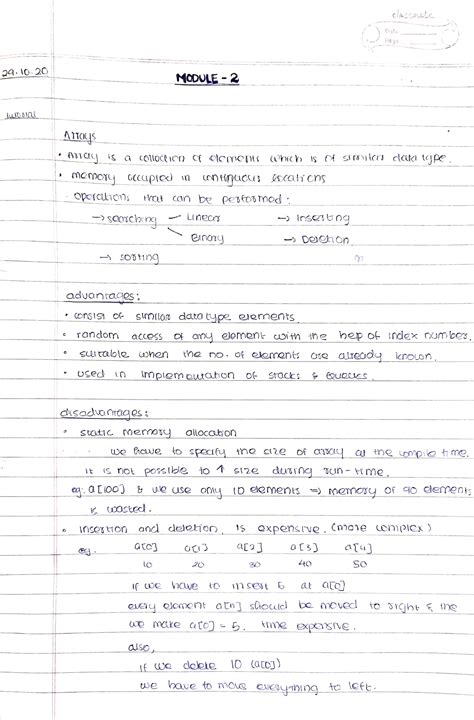 classmate
Date
Page
29.10.20
MODULE - 2
tutorial
Arrays
• Array is a collection of elements which is of similar data type.
• memory occupied in contiguous locations
operations that can be performed:
→ searching – Linear → Inserting
Binary → Deletion
→ sorting
advantages:
• consist of similar datatype elements
• random access of any element with the help of index number.
• suitable when the no. of elements are already known.
• used in implementation of stacks & queues.
disadvantages:
• static memory allocation
we have to specify the size of array at the compile time.
it is not possible to ↑ size during run-time.
eg. a[100] & we use only 10 elements ⇒ memory of 90 elements
is wasted.
• insertion and deletion is expensive. (more complex)
eg. a[0] a[1] a[2] a[3] a[4]
10 20 30 40 50
if we have to insert 5 at a[0]
every element a[n] should be moved to right & the
we make a[0] = 5. time expensive.
also,
if we delete 10 (a[0])
we have to move everything to left.